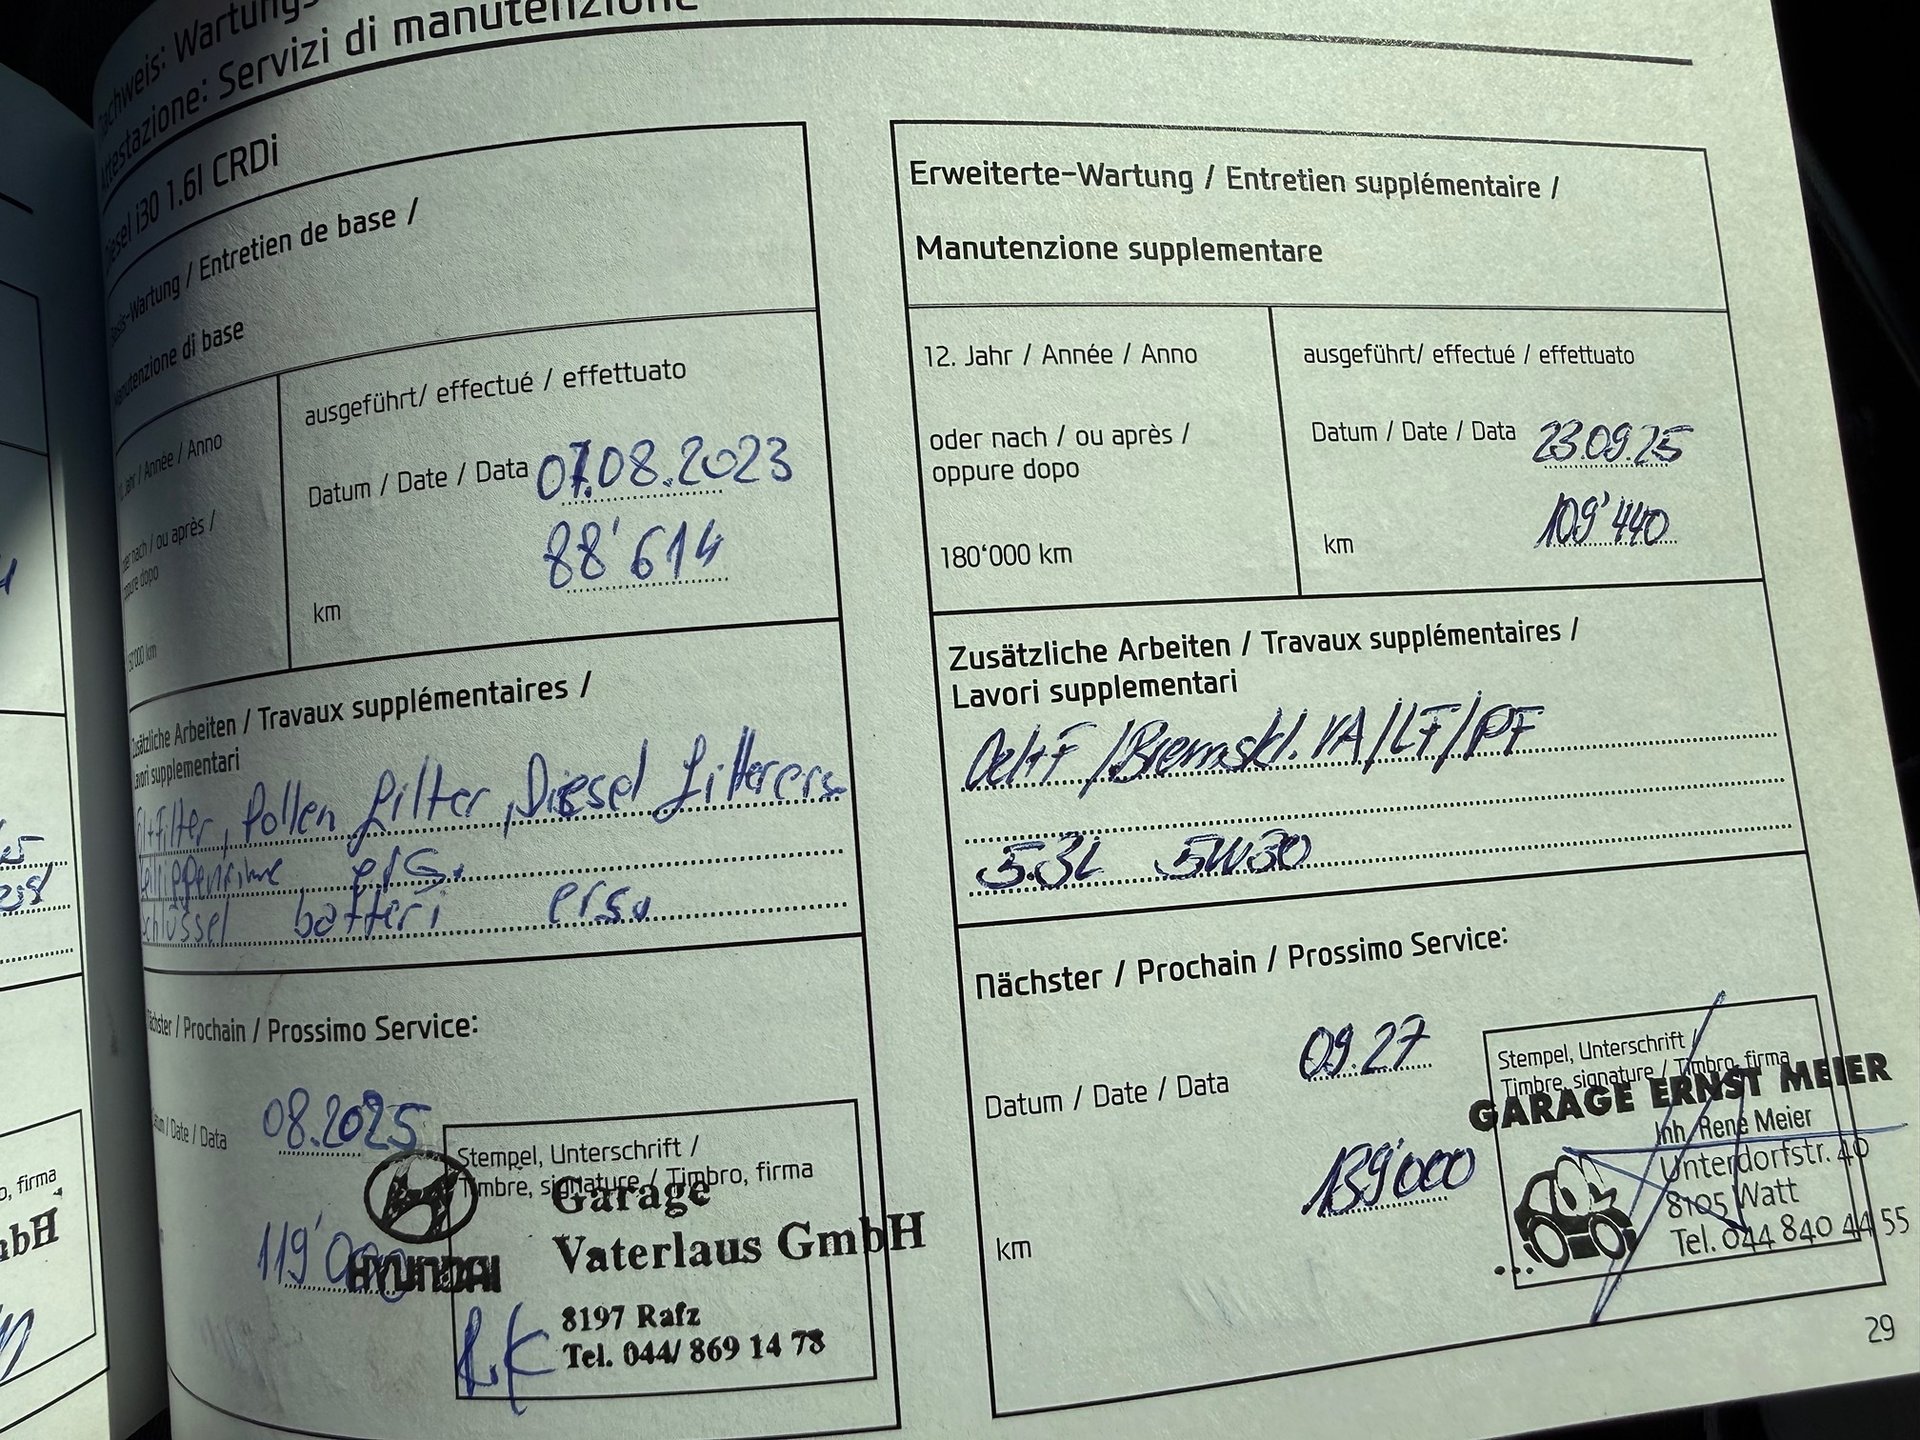 Nachweis: Wartungs
Attestazione: Servizi di manutenzione
Diesel i30 1.6l CRDi
Basis-Wartung / Entretien de base /
Manutenzione di base
Jahr / Année / Anno
oder nach / ou après /
oppure dopo
km
ausgeführt/ effectué / effettuato
Datum / Date / Data 07.08.2023
88'614
km
Zusätzliche Arbeiten / Travaux supplémentaires /
Lavori supplementari
Öl+Filter, Pollen filter, Diesel filter ers.
ers.
Schlüssel batteri ers.
Nächster / Prochain / Prossimo Service:
Datum / Date / Data 08.2025
119'000
Stempel, Unterschrift /
Timbre, signature / Timbro, firma
HYUNDAI
Garage
Vaterlaus GmbH
8197 Rafz
Tel. 044/ 869 14 78
Erweiterte-Wartung / Entretien supplémentaire /
Manutenzione supplementare
12. Jahr / Année / Anno
oder nach / ou après /
oppure dopo
180'000 km
ausgeführt/ effectué / effettuato
Datum / Date / Data 23.09.25
km 109'440
Zusätzliche Arbeiten / Travaux supplémentaires /
Lavori supplementari
Oel+F /Bremskl. VA/LF/PF
5.3L 5W30
Nächster / Prochain / Prossimo Service:
Datum / Date / Data 09.27
km 139'000
Stempel, Unterschrift /
Timbre, signature / Timbro, firma
GARAGE ERNST MEIER
Inh. René Meier
Unterdorfstr. 40
8105 Watt
Tel. 044 840 44 55
29
o, firma
mbH